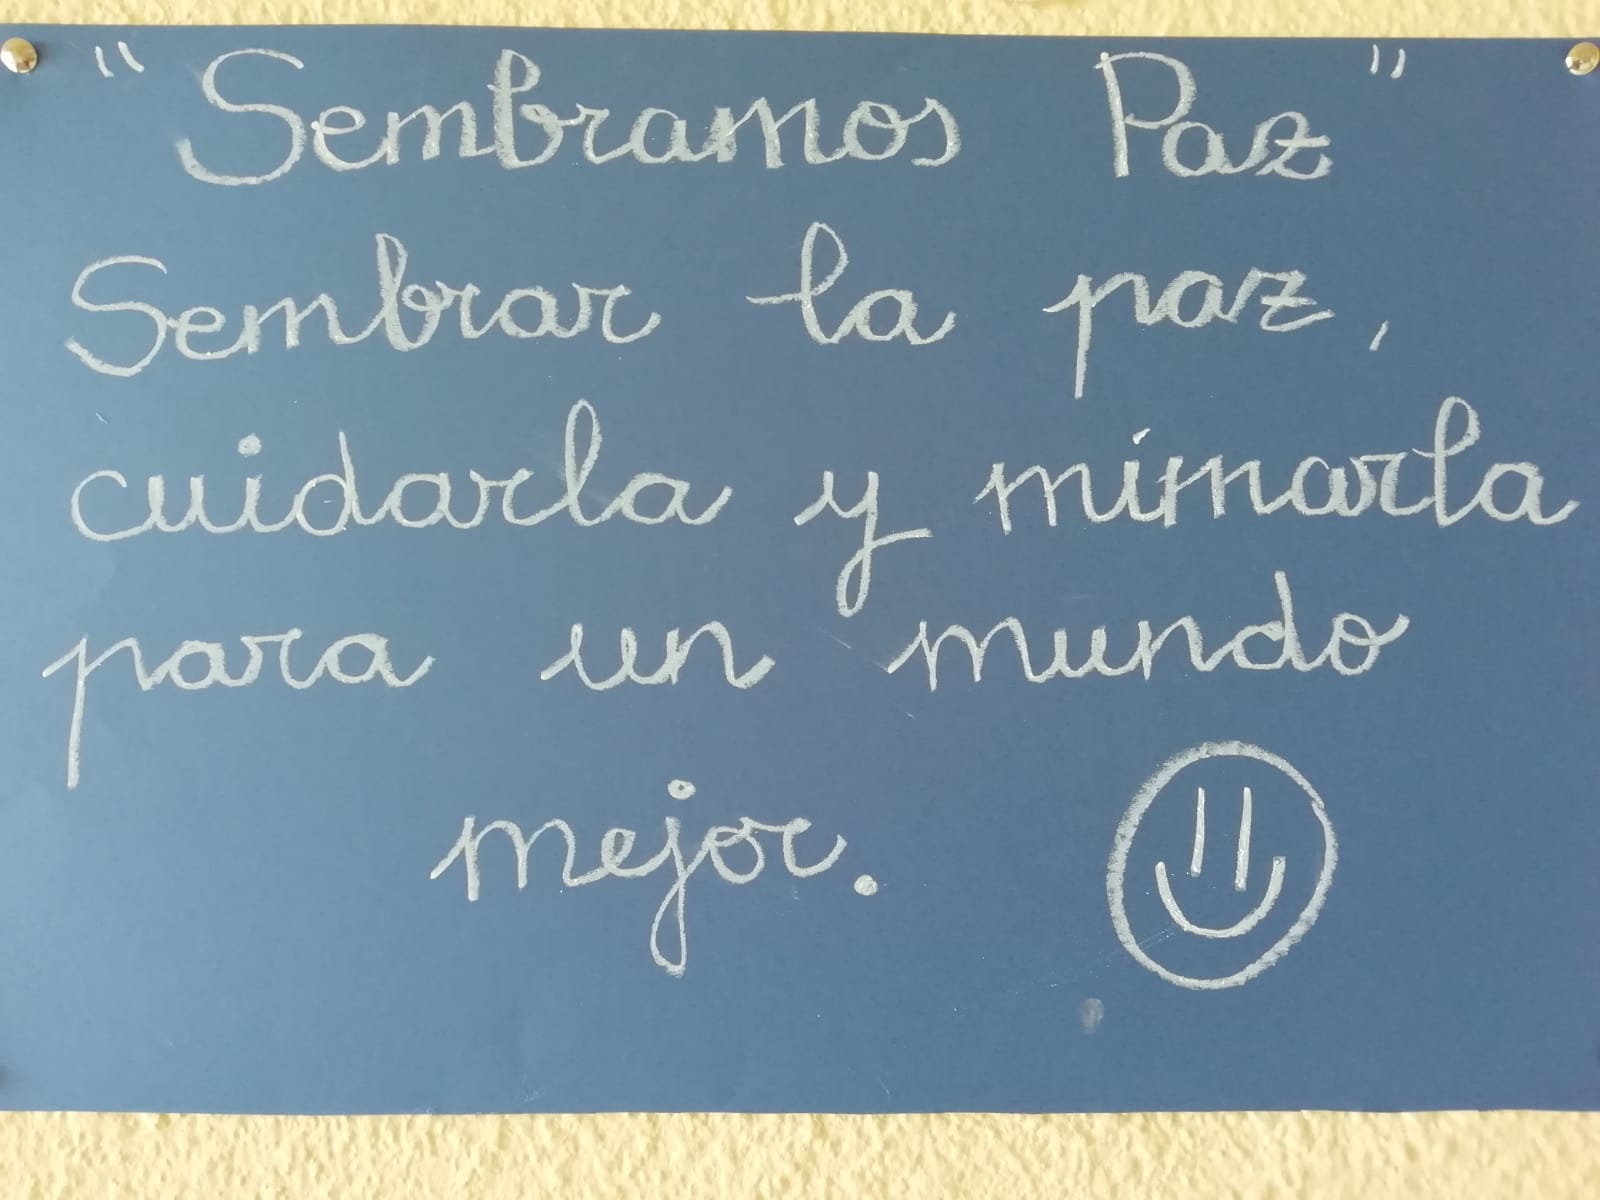 "Sembramos Paz"
Sembrar la paz,
cuidarla y mimarla
para un mundo
mejor.